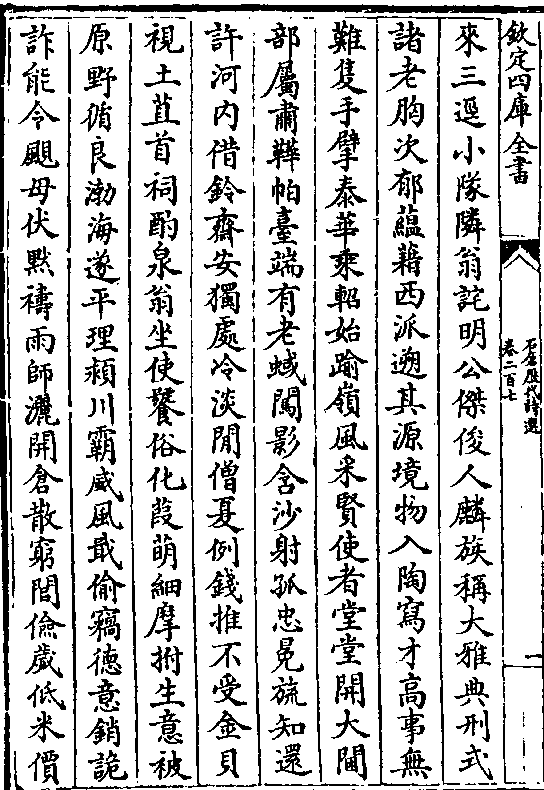 欽定四庫全書
石倉歷代詩選
卷二百七
一
來三逕小隊隣翁詫明公傑俊人麟族稱大雅典刑式
諸老胸次郁蘊藉西派遡其源境物入陶寫才高事無
難隻手擘泰華乘軺始踰嶺風采賢使者堂堂開大閫
部屬肅鞾帕臺端有老蜮闖影含沙射孤忠冕旒知還
許河内借鈴齋安獨處冷淡閒僧夏例錢推不受金貝
視土苴首祠酌泉翁坐使饕俗化葭萌細摩拊生意被
原野循良渤海遂平理潁川霸威風戢偷竊德意銷詭
詐能令颶母伏默禱雨師灑開倉散窮閻儉歲低米價